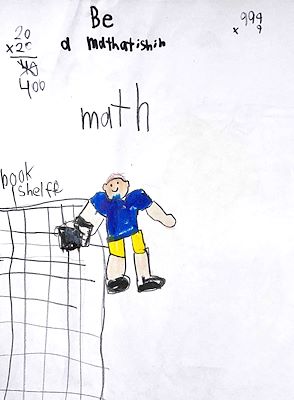 Be
a mathatishin
20
×20
400
999
× 9
math
book
shelfe